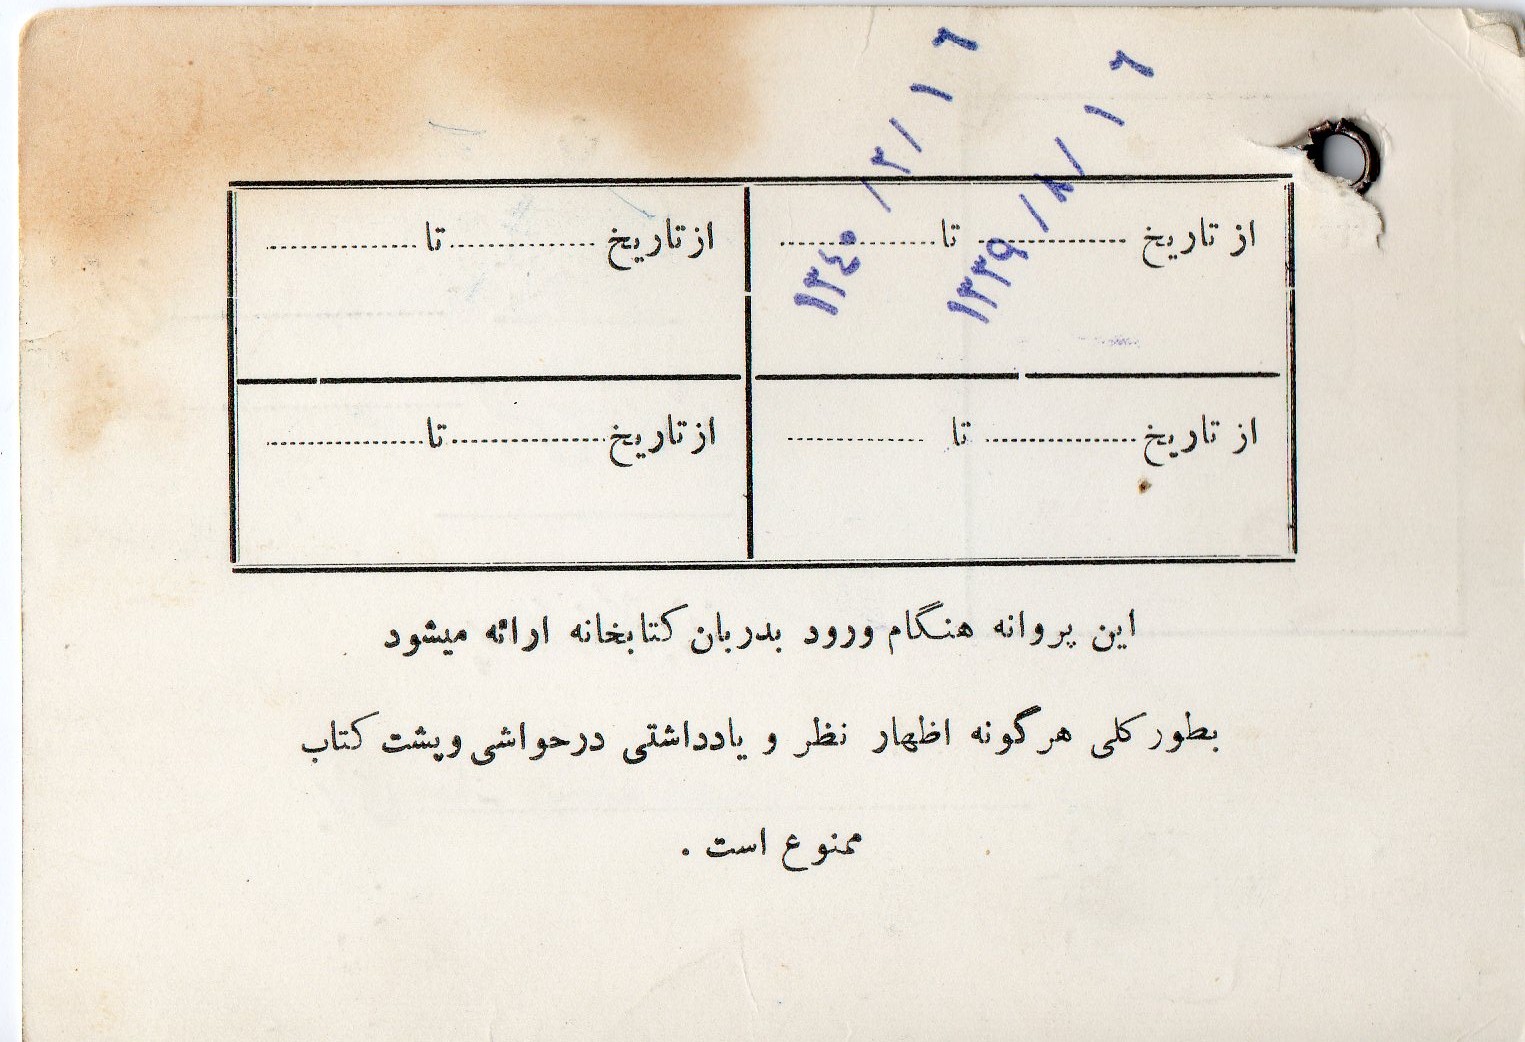 ۱۳۳۹/۸/۱۶
۱۳٤۰/۲/۱۶
از تاریخ .................... تا ....................
از تاریخ .................... تا ....................
از تاریخ .................... تا ....................
از تاریخ .................... تا ....................
این پروانه هنگام ورود بدربان کتابخانه ارائه میشود
بطور کلی هر گونه اظهار نظر و یادداشتی در حواشی و پشت کتاب
ممنوع است .